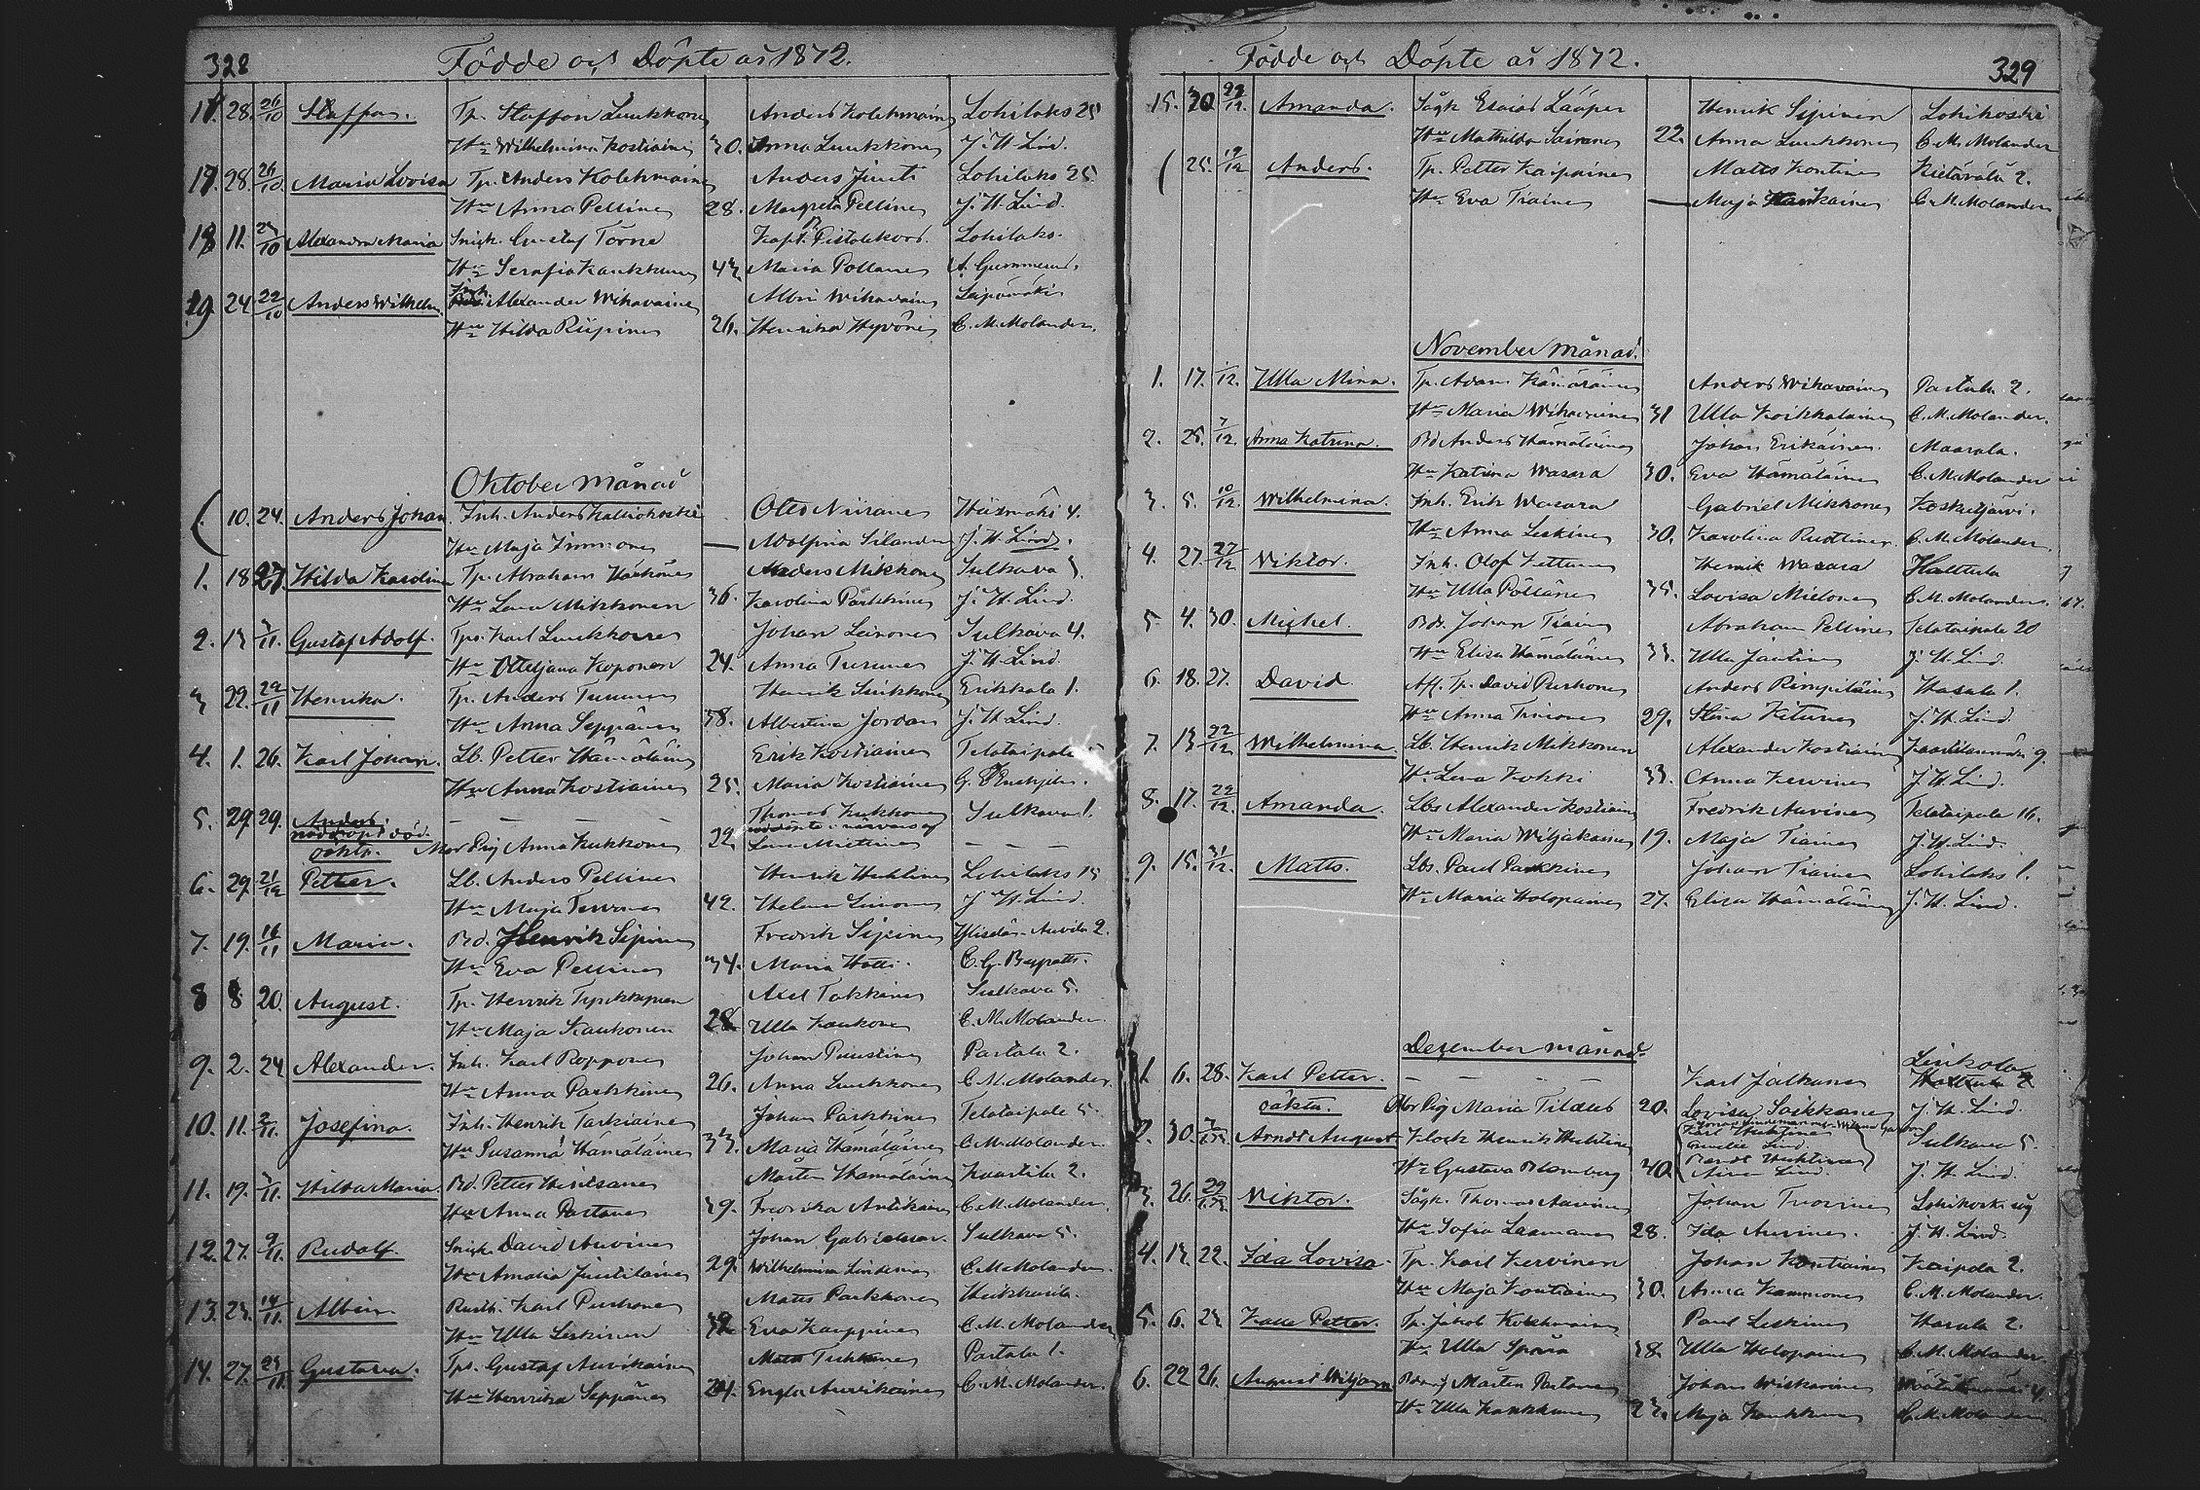 328
Födde och Döpte år 1872.
17. 28. 26/10 Staffan. Tp. Staffan Luukkone Anders Kolehmain Lohilaks 25
Hu Wilhelmina Kostiaine 30. Anna Luukkone J. H. Lind.
17. 28. 26/10 Maria Lovisa Tp. Anders Kolehmaine Anders Lohilaks 25
Hu Anna Pelline 28. Margreta Pelline J. H. Lind.
18 11. /10 Alexandra Maria Snigk. Gustaf Törne Kapt. Pistolekors. Lohilaks.
Hu Serafia Kaukkune 43 Maria Pollane A. Gummerus.
19 24 22/10 Anders Wilhelm. Alexander Wihavaine Albin Wihavaine
Hu Hilda Riipine 26. Henrika Hyvöne C. M. Molander.
Oktober Månad
10. 24. Anders Johan Inh. Anders Kalliokoski Otto Niirane 4.
Hu Maja Immone — Adolfina Silander J. H. Lind.
1. 18 27. Hilda Karolina Tp. Abraham Härköne Anders Mikkone Sulkava
Hu Lena Mikkonen 36. Karolina Parkkine J. H. Lind.
2. 13 /11. Gustaf Adolf. Tps. Karl Luukkone Johan Sairone Sulkava 4.
Hu Ottiljana Koponen 24. Anna Turune J. H. Lind.
3 22. 22/11 Henrika. Tp. Anders Turune Henrik Luukkone Erikkala 1.
Hu Anna Seppäne 38. Albertina Jordan J. H. Lind.
4. 1. 26. Karl Johan. Lb. Petter Hämäläine Erik Kostiaine Telataipale
Hu Anna Kostiaine 25. Maria Kostiaine G.
5. 29. 29. Anders. — — — — Thomas Kukkone Sulkava 1.
nöddöpt död.
oäkta. Mor Pig Anna Kukkone 22. Lena Miettine — — —
6. 29. 21/12 Petter. Lb. Anders Pelline Henrik Huhtine Lohilaks 15
Hu Maja Tervone 42. Helena Simone J. H. Lind.
7. 19. 16/11 Maria. Bd. Henrik Sipine Fredrik Sipine Auvila 2.
Hu Eva Pelline 34. Maria Hatti.
8 8 20. August. Tp. Henrik Axel Takkine Sulkava 5.
Hu Maja Kaukonen 28 Ulla Kaukone C. M. Molander.
9. 2. 24 Alexander. Inh. Karl Roppone Johan Puustine Partala 2.
Hu Anna Parkkine 26. Anna Luukkone C. M. Molander.
10. 11. 2/11. Josefina. Inh. Henrik Tarkiaine Johan Parkkine Telataipale 5.
Hu Susanna Hämäläine 33. Maria Hämäläine C. M. Molander.
11. 19. 3/11. Hilda Maria. Bd. Petter Hiltane Mårten Hämäläine Kaartila 2.
Hu Anna Partane 39. Fredrika Antikaine C. M. Molander.
12. 27. 9/11. Rudolf. Snigk. David Auvine Johan Gabrielsson. Sulkava 5.
Hu Amalia Juutilaine 29. Wilhelmina Lindeman C. M. Molander.
13. 23. 14/11. Albin. Rusth. Karl Purhone Matts Parkkone Heikkurila.
Hu Ulla Leskinen Eva Kauppine C. M. Molander.
14. 27. 23/11. Gustava. Tps. Gustaf Auvikaine Matts Tuhkune Partala 1.
Hu Henrika Seppäne 24. Engla Auvikaine C. M. Molander.
Födde och Döpte år 1872.
329
15. 30. 23/12. Amanda. Sågk. Esaias Lääper Henrik Sipinen Lohikoski
Hu Mathilda Sairane 22. Anna Luukkone C. M. Molander
25. 19/12 Anders. Tp. Petter Kaipaine Matts Kontine Kietävälä 2.
Hu Eva Tiaine — Maja Kaukaine C. M. Molander
November månad.
1. 17. 1/12. Ulla Mina. Tp. Adam Hämäläine Anders Wihavaine Partala 2.
Hu Maria Wihavaine 31 Ulla Koikkalaine C. M. Molander.
2. 25. 7/12. Anna Katrina. Bd Anders Hämäläine Johan Erikäinen. Maarala.
Hu Katrina Wasara 30. Eva Hämäläine C. M. Molander
3. 5. 10/12 Wilhelmina. Inh. Erik Wasara Gabriel Mikkone Koskutjärvi.
Hu Anna Leskine 30. Karolina Ruottine C. M. Molander.
4. 27. 27/12 Viktor. Inh. Olof Kettune Henrik Wasara Halttula
Hu Ulla Pöllänē 35. Lovisa Mielone C. M. Molander.
5 4. 30. Mickel. Bds. Johan Tiaine Abraham Pelline Telataipale 20
Hu Elisa Hämäläine 33. Ulla Jantine J. H. Lind.
6. 18. 27. David Aff. Tp. David Purhone Anders Rimpiläine Hasula 1.
Hu Anna Timone 29. Stina Kitune J. H. Lind.
7. 13 22/12 Wilhelmina. Lb. Henrik Mikkonen Alexander Kostiaine 9.
Hu Lena Kokki 33. Anna Kervine J. H. Lind.
8. 17. 22/12. Amanda. Lbs Alexander Kostiaine Fredrik Auvine Telataipale 16.
Hu Maria Wiljakaine 19. Maja Tiaine J. H. Lind.
9. 15. 31/12. Matts. Lbs. Paul Parkkine Johan Tiaine Lohilaks 1.
Hu Maria Holopaine 27. Elisa Hämäläine J. H. Lind.
December månad.
1. 6. 28. Karl Petter. — — — — Karl Jalkane Linkola 2
oäkta. Mor Pig Maria Tilæus 20. Lovisa Soikkane J. H. Lind.
2. 30. Arndt August Klock Henrik Huhtine Karl Huhtine Sulkava 5.
Hu Gustava Blomberg 40. Lind J. H. Lind.
3. 26. Viktor. Sågk. Thomas Auvine Johan Lohikoski såg
Hu Sofia Laamane 28. Ida Auvine. J. H. Lind.
4. 13. 22. Ida Lovisa. Tp. Karl Kervinen Johan Kontiaine Kaipola 2.
Hu Maja Kontiaine 30. Anna Kammone C. M. Molander.
5. 6. 23 Kalle Petter. Tp. Jakob Kolehmaine Paul Leskine Hasula 2.
Hu Ulla Späna 38. Ulla Holopaine C. M. Molander.
6. 22 26. August Wiljam Mårten Partane Johan Wiskarine 4.
Hu Ulla Kaukkune 23. Maja Kaukkune C. M. Molander